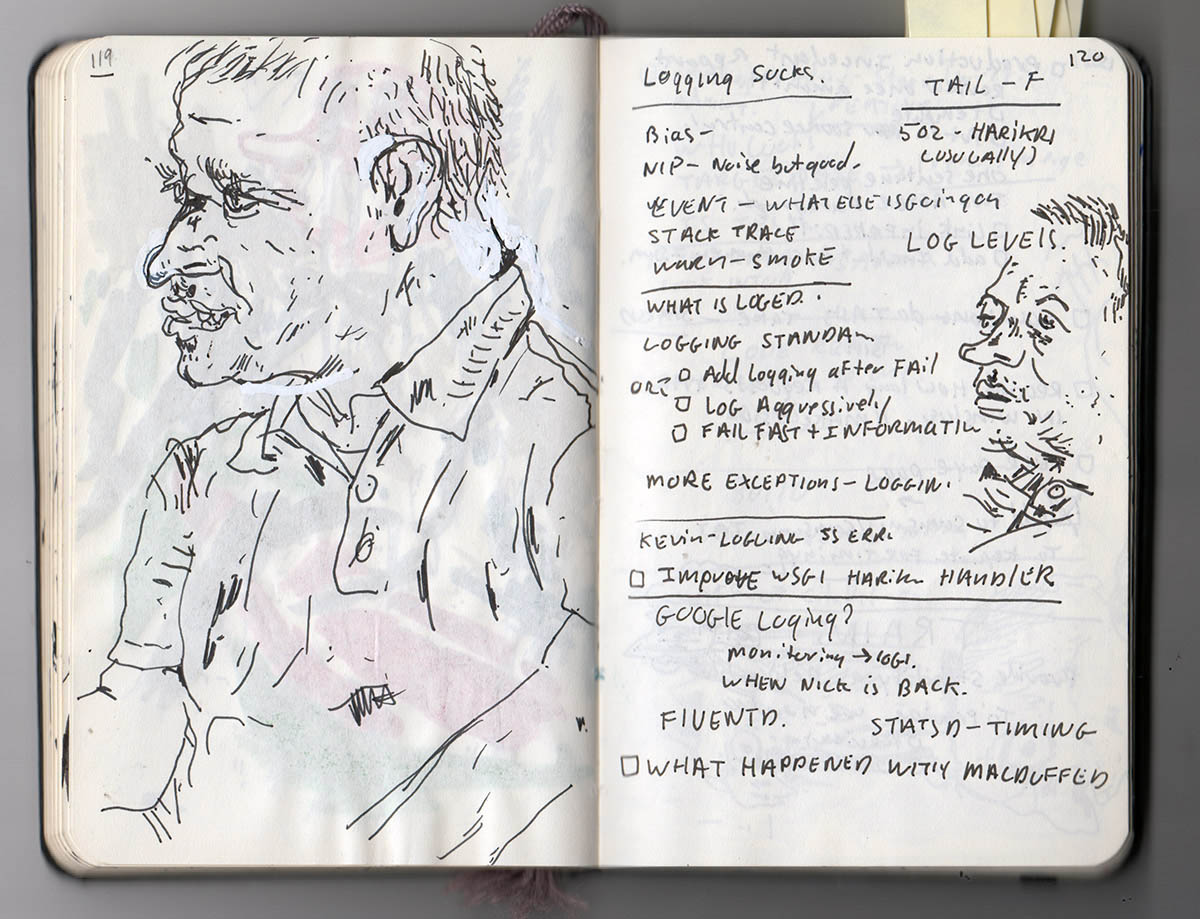 119
120
Logging Sucks.
TAIL - F
Bias-
502 - HARIKRI
(USUCALLY)
NIP - Noise but good.
EVENT - WHAT ELSE IS GOING ON
STACK TRACE
LOG LEVELS.
WARN - SMOKE
WHAT IS LOGED.
LOGGING STANDA
□ Add Logging after FAIL
□ LOG Aggressively
□ FAIL FAST + INFORMATIN
MORE EXCEPTIONS - LOGGIN.
KEVIN - LOGLING SS ERR.
□ IMPROVE WSGI HARIKIR HANDLER
GOOGLE Loging?
monitoring → logs.
WHEN NICK IS BACK.
FLUENTD.
STATSD - TIMING
□ WHAT HAPPENED WITH MACDUFFED